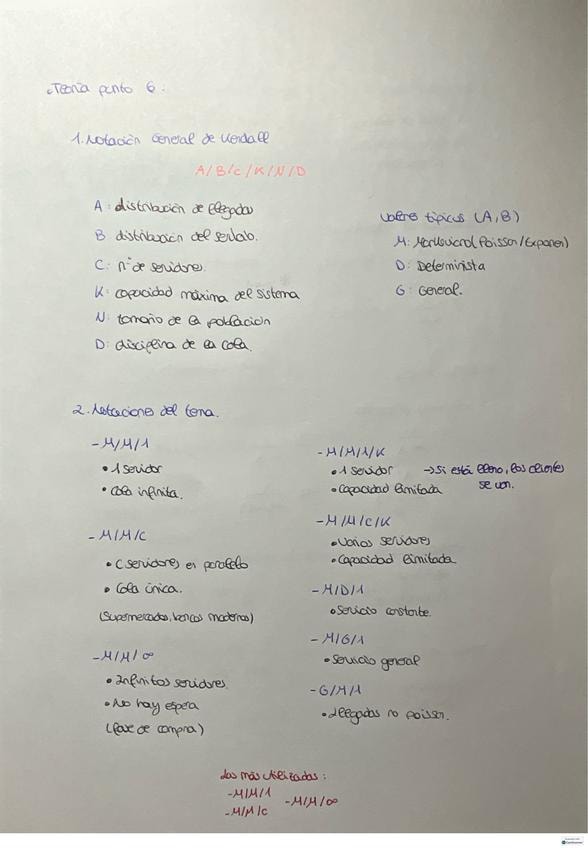 • Teoría punto 6:
1. Notación General de Kendall
A/B/c/K/N/D
A: distribución de llegadas
B distribución del servicio.
C: nº de servidores.
K: capacidad máxima del sistema
N: tamaño de la población
D: disciplina de la cola.
Valores típicos (A,B)
M: Markoviano (Poisson/Exponen)
D: Determinista
G: General.
2. Notaciones del tema.
- M/M/1
• 1 servidor
• Cola infinita.
- M/M/C
• C servidores en paralelo
• Cola única.
(Supermercados, bancos modernos)
- M/M/∞
• Infinitos servidores.
• No hay espera
(fase de compra)
- M/M/1/K
• 1 servidor → Si está lleno, los clientes
se van.
• Capacidad limitada
- M/M/C/K
• Varios servidores
• Capacidad limitada
- M/D/1
• Servicio constante.
- M/G/1
• Servicio general
- G/M/1
• Llegadas no poisson.
Las más utilizadas:
- M/M/1
- M/M/∞
- M/M/C